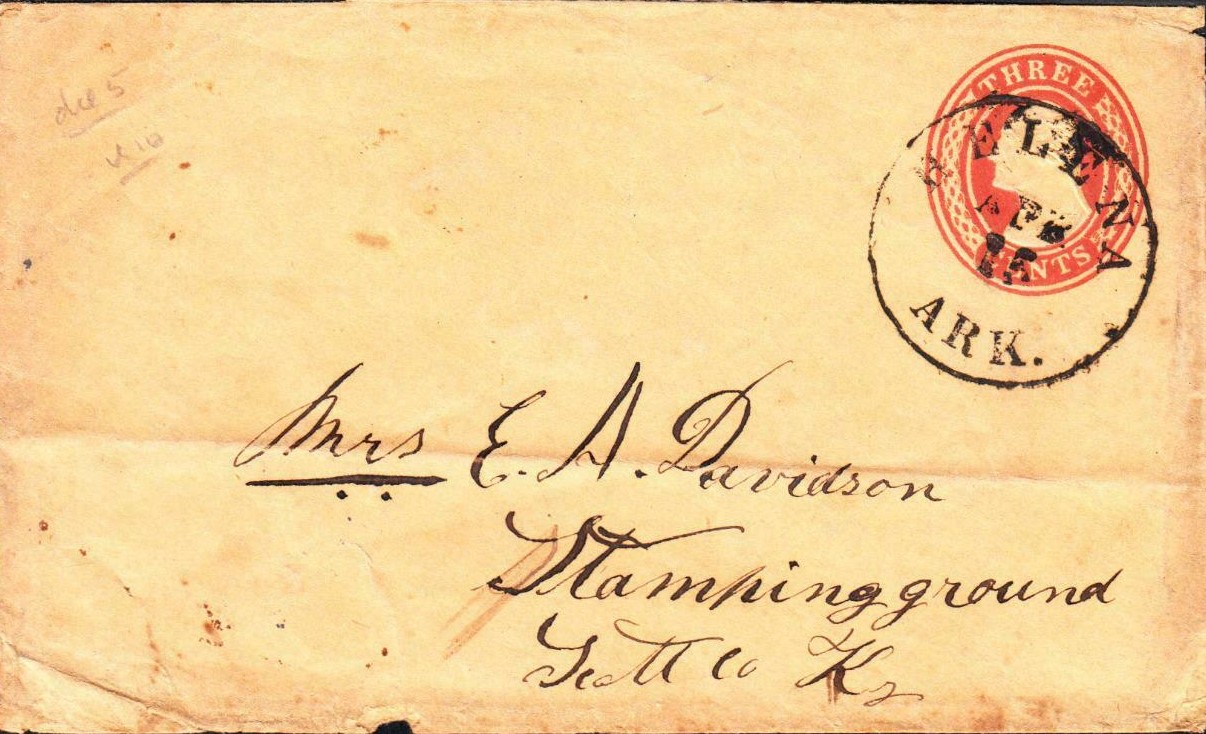 die 5
U 10
THREE
CENTS
HELENA
APR
15
ARK.
Mrs E. A. Davidson
Stampingground
Scott Co Ky